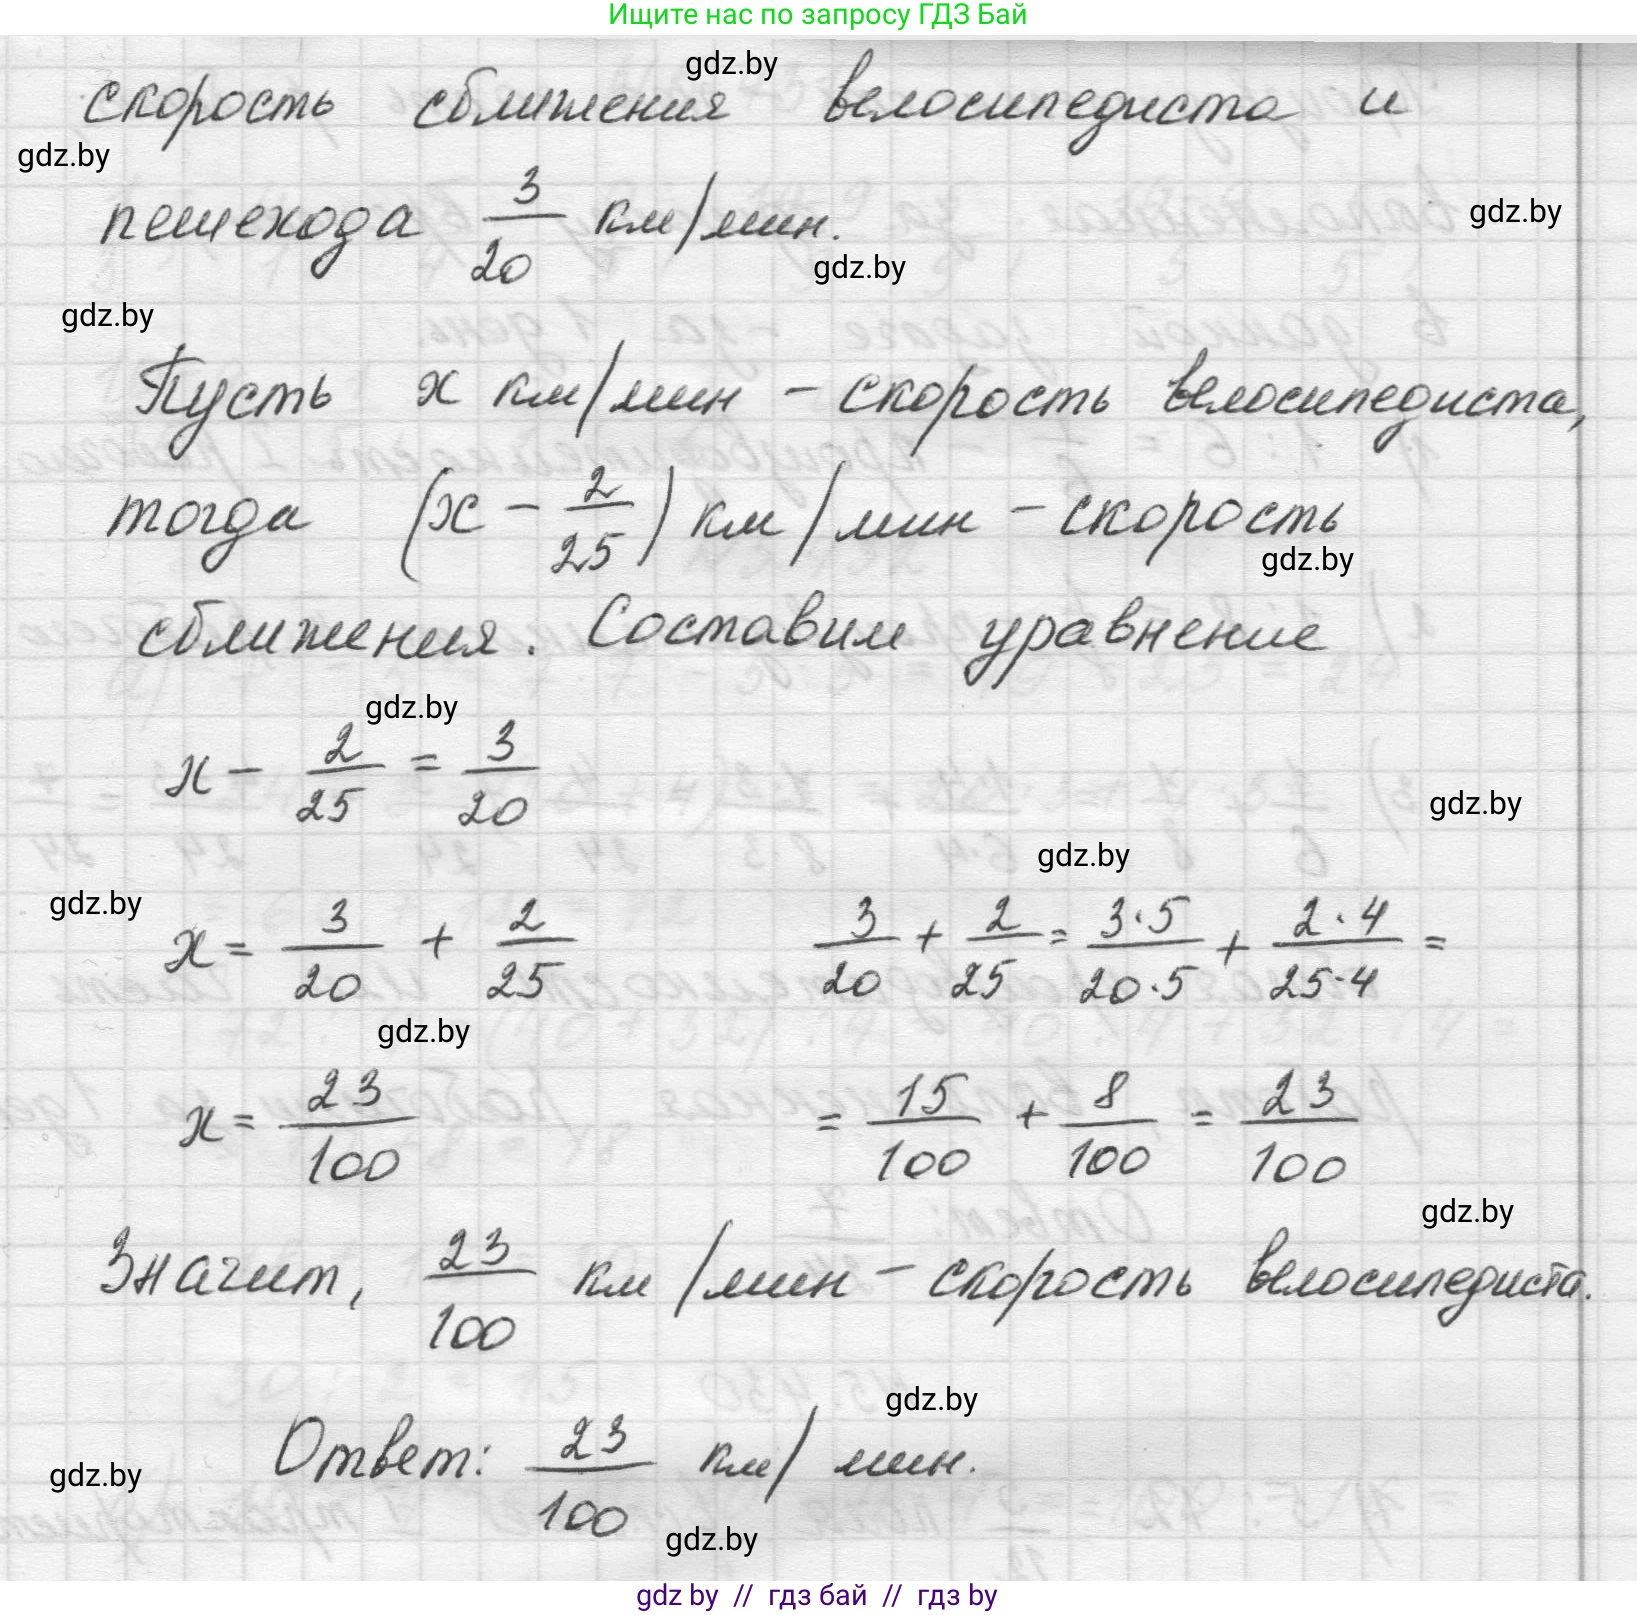 Ищите нас по запросу ГДЗ Бай
gdz.by
скорость сближения велосипедиста и
gdz.by
пешехода 3/20 км/мин.
gdz.by
gdz.by
gdz.by
Пусть x км/мин – скорость велосипедиста,
тогда (x – 2/25) км/мин – скорость
gdz.by
сближения. Составим уравнение
gdz.by
x – 2/25 = 3/20
gdz.by
gdz.by
gdz.by
x = 3/20 + 2/25    3/20 + 2/25 = 3·5/20·5 + 2·4/25·4 =
gdz.by
x = 23/100    = 15/100 + 8/100 = 23/100
gdz.by
Значит, 23/100 км/мин – скорость велосипедиста.
gdz.by
Ответ: 23/100 км/мин.
gdz.by
gdz.by
gdz by // гдз бай // гдз by